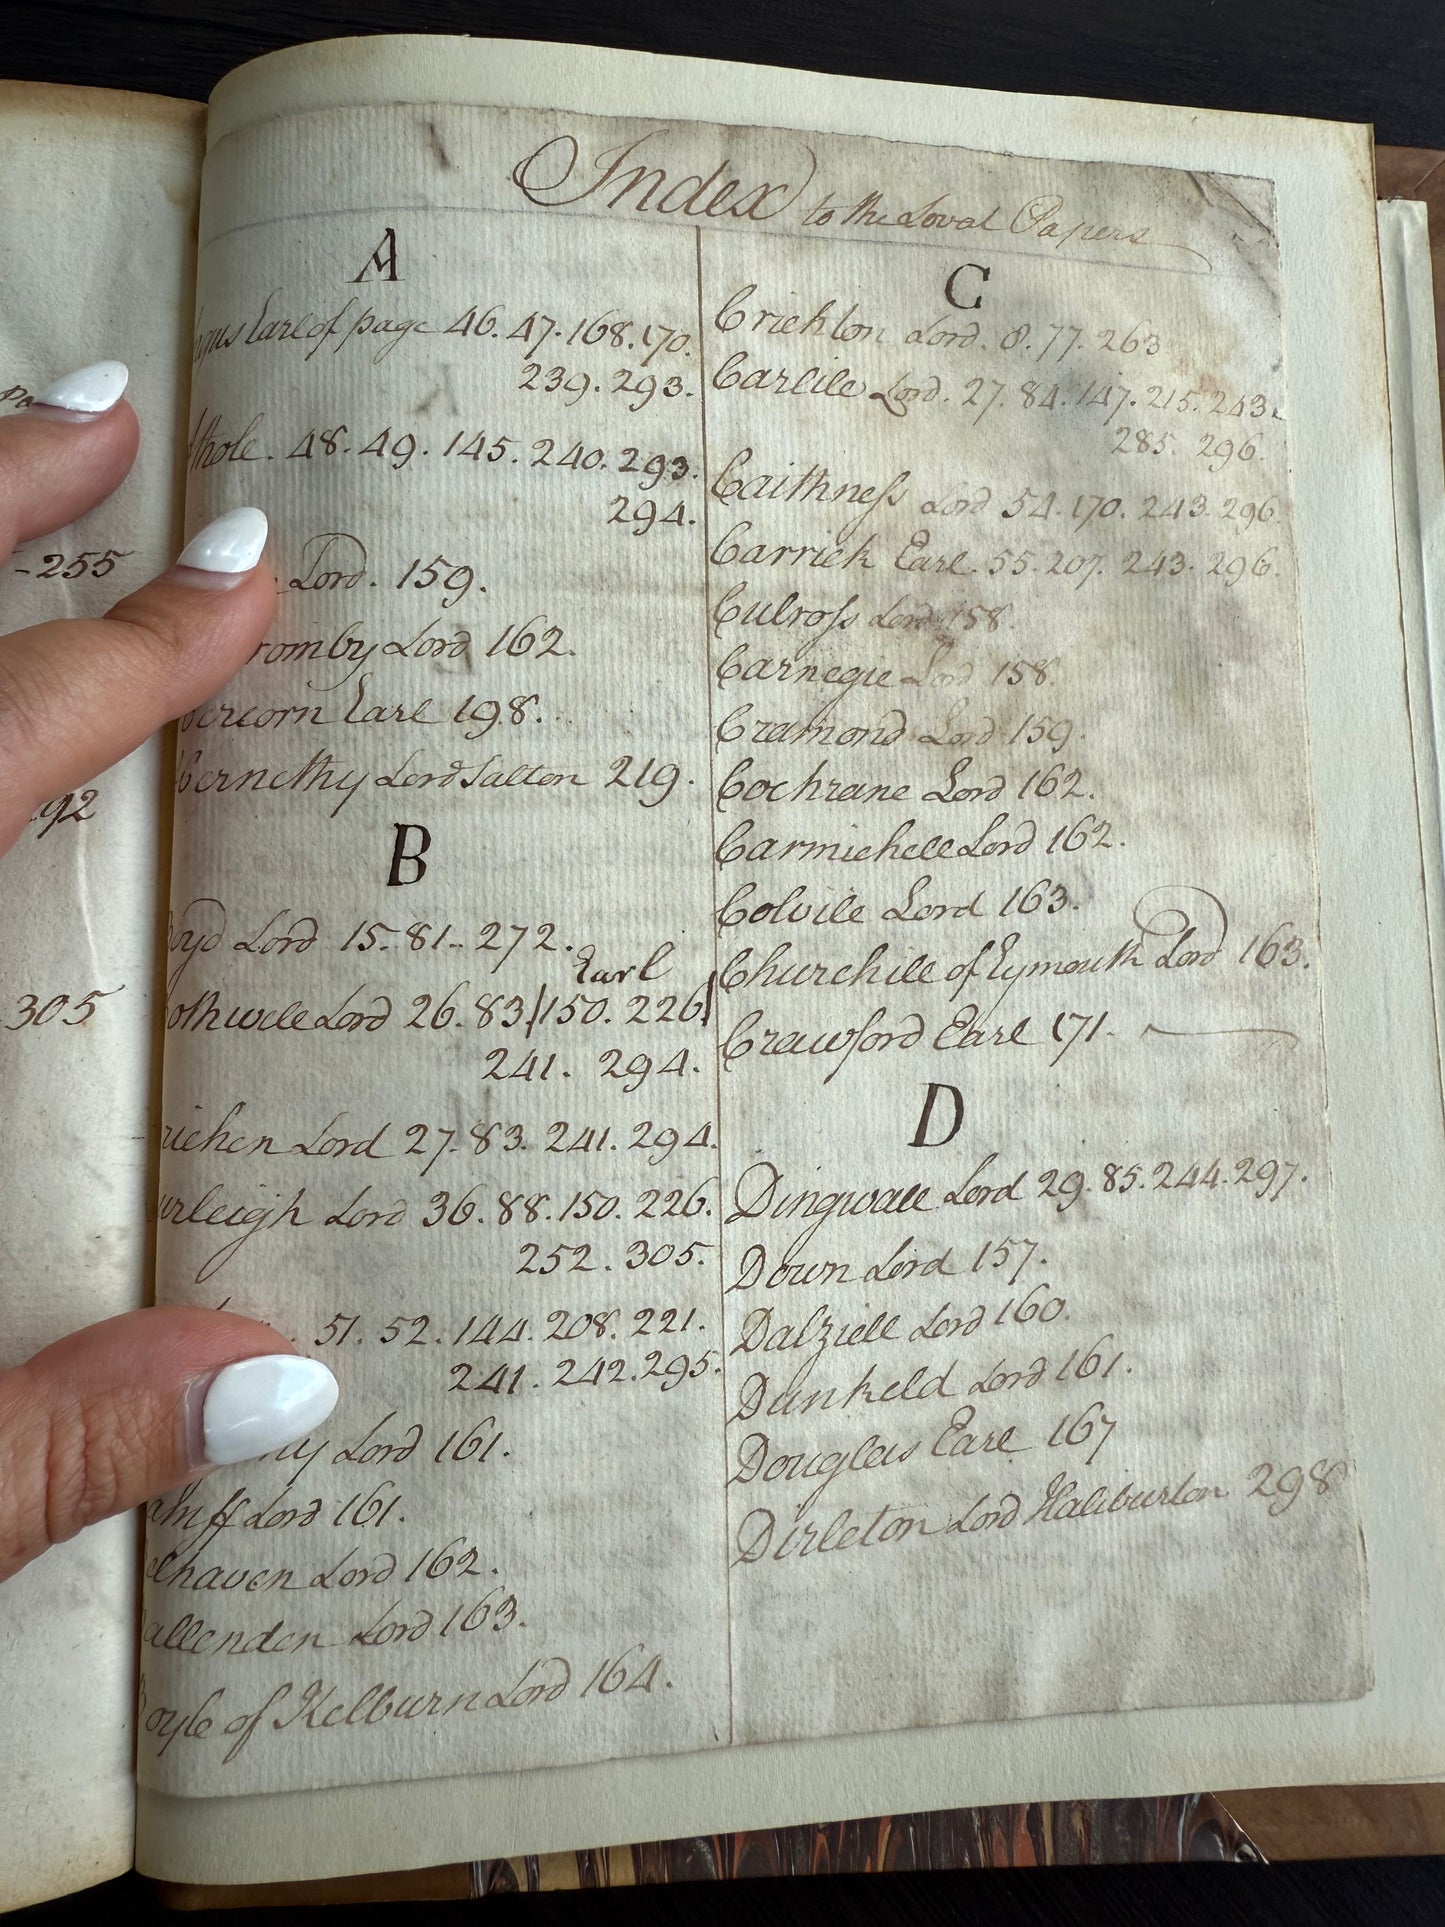 Index to the Lovat Papers
A
gus Earl of page 46. 47. 168. 170.
239. 293.
Athole. 48. 49. 145. 240. 293.
294.
Lord. 159.
romby Lord 162.
bercorn Earl 198.
bernethy Lord Salton 219.
B
Boyd Lord 15. 81. 272.
Earl
othwell Lord 26. 83. 150. 226
241. 294.
richen Lord 27. 83. 241. 294.
urleigh Lord 36. 88. 150. 226.
252. 305.
51. 52. 144. 208. 221.
241. 242. 295.
ny Lord 161.
amff Lord 161.
elhaven Lord 162.
allenden Lord 163.
Boyle of Kelburn Lord 164.
C
Crichton Lord. 8. 77. 263
Carlile Lord. 27. 84. 147. 215. 243.
285. 296.
Caithness Lord 54. 170. 243. 296.
Carrick Earl. 55. 207. 243. 296.
Culross Lord 158.
Carnegie Lord 158.
Cramond Lord 159.
Cochrane Lord 162.
Carmichell Lord 162.
Colvile Lord 163.
Churchill of Eymouth Lord 163.
Crawford Earl 171.
D
Dingwall Lord 29. 85. 244. 297.
Down Lord 157.
Dalziell Lord 160.
Dunkeld Lord 161.
Douglas Earl 167
Dirleton Lord Haliburton 298
255
92
305